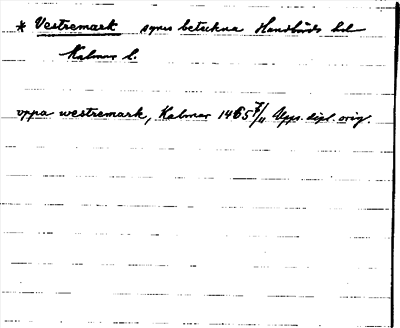 * Vestremark synes beteckna Handbörds hd
Kalmar l.
oppa westremark, Kalmar 1465 7/11 Upps. dipl. orig.